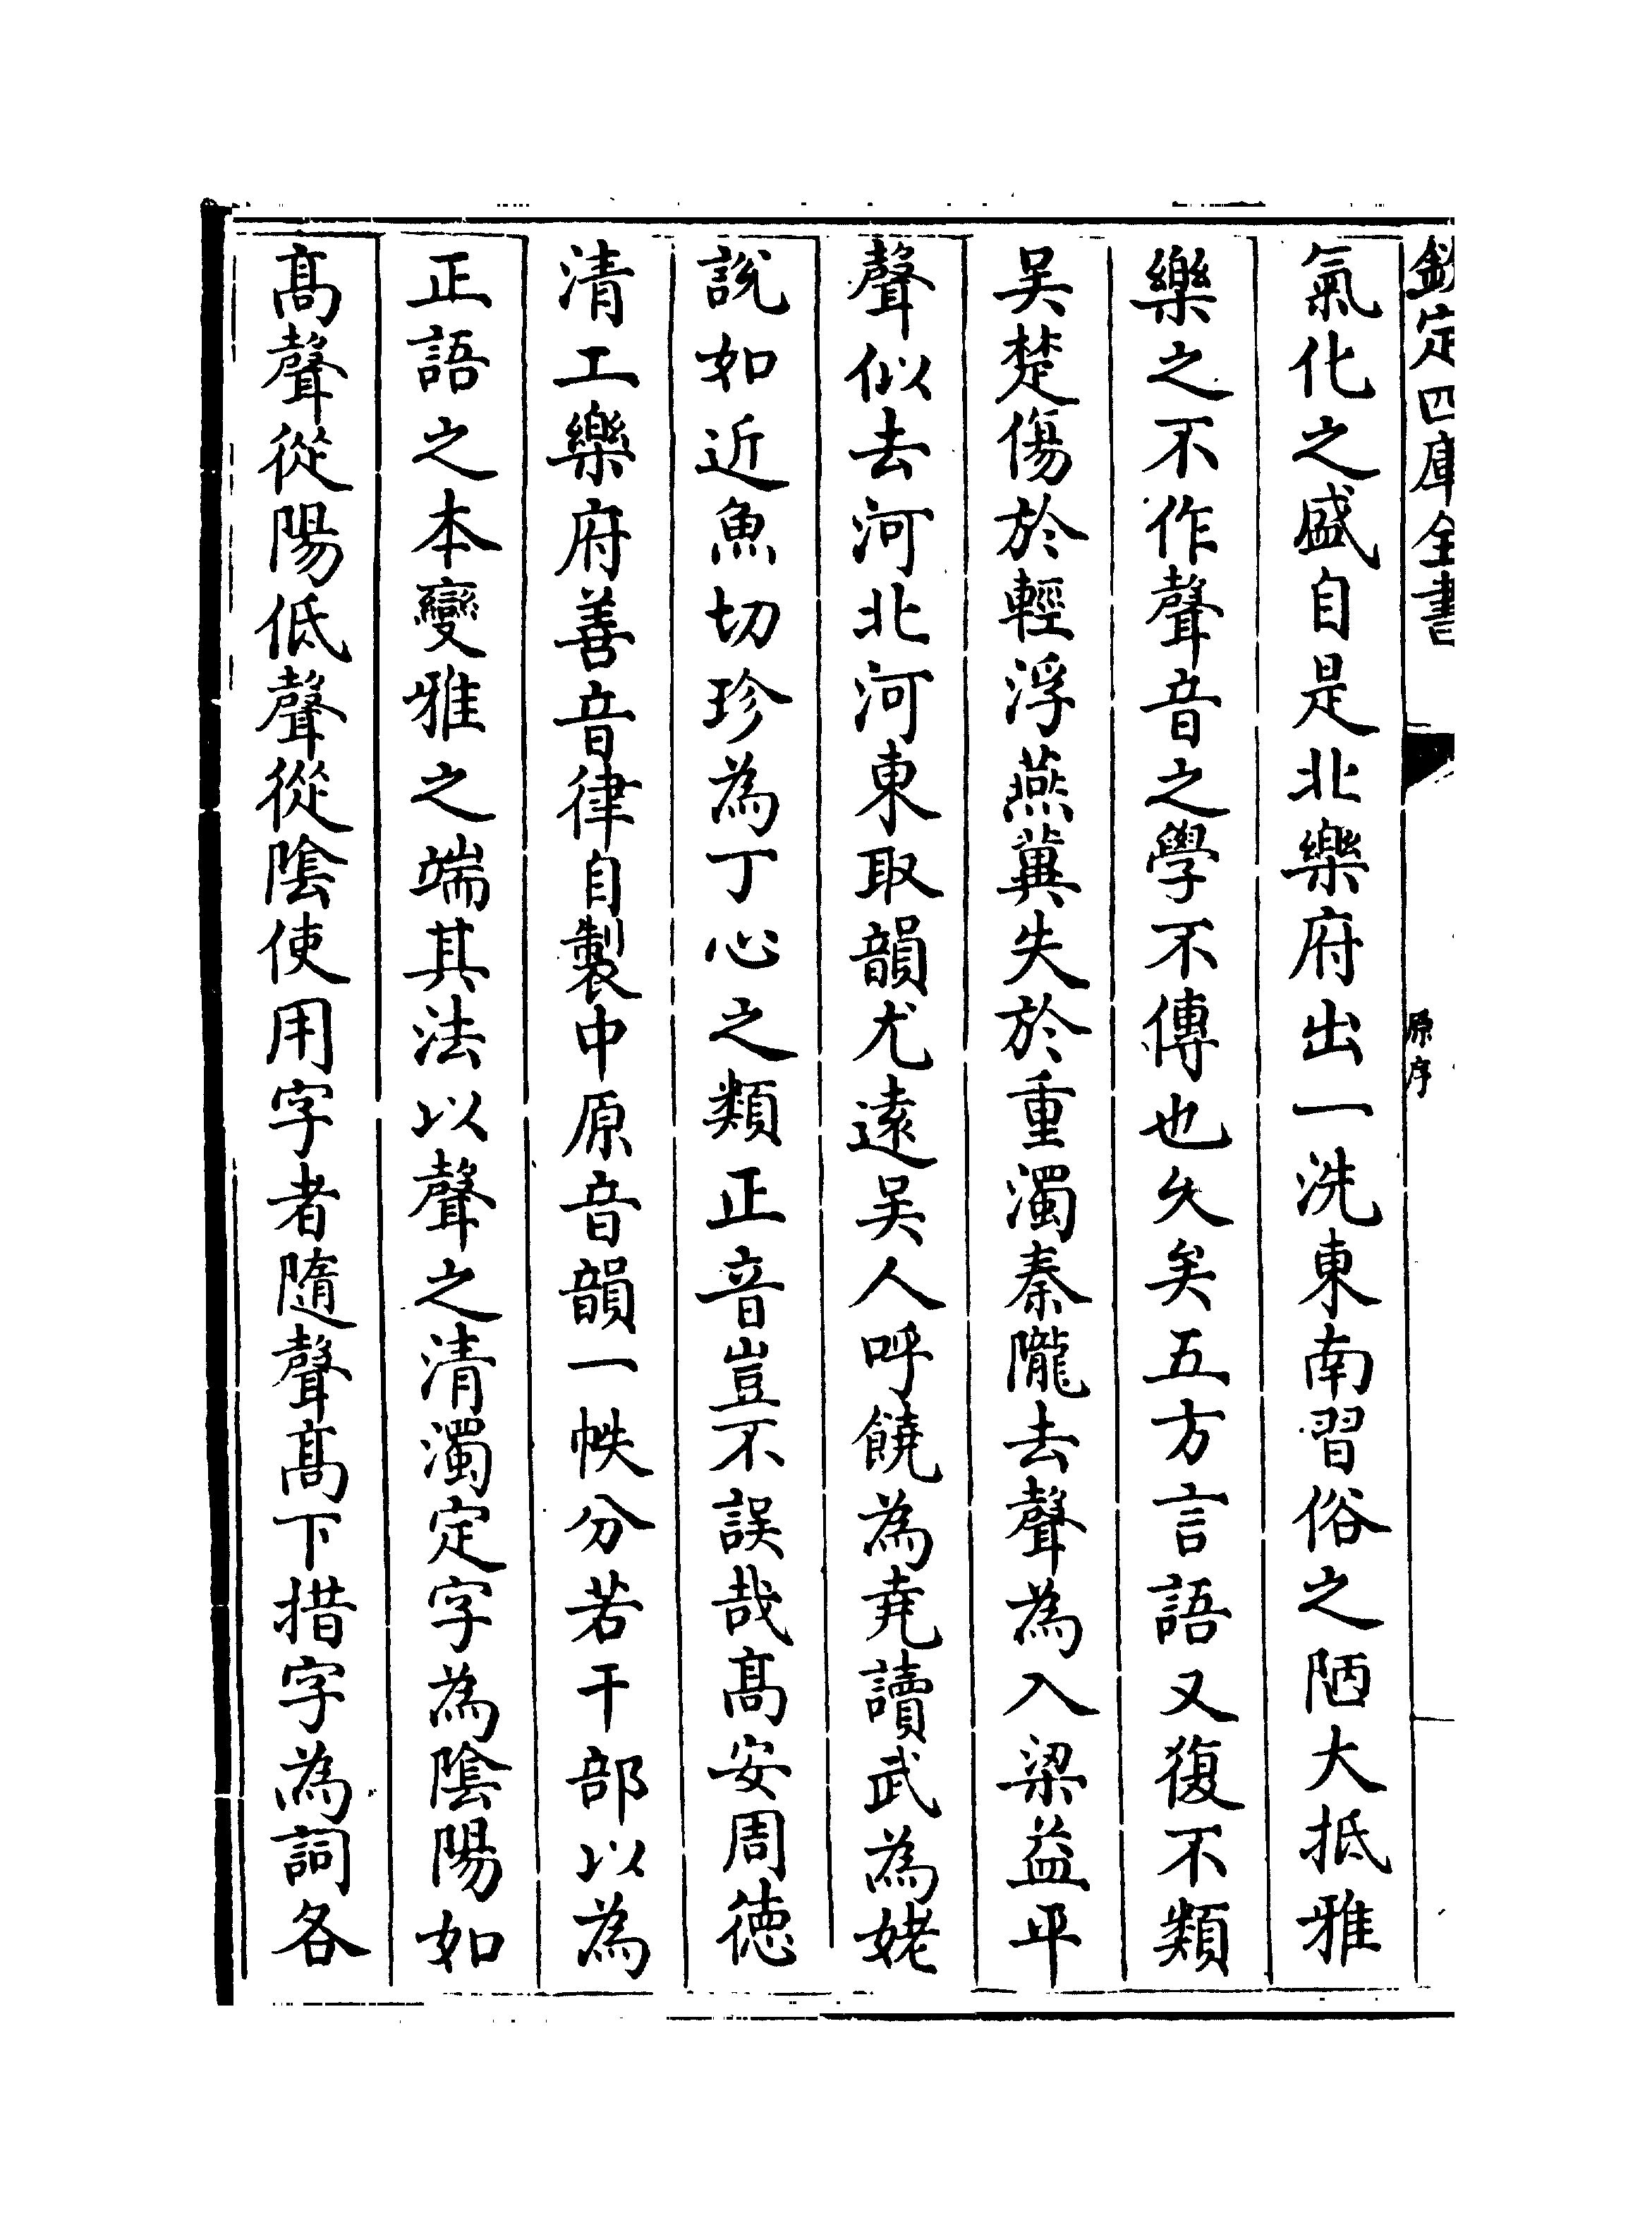 欽定四庫全書
原序
氣化之盛自是北樂府出一洗東南習俗之陋大抵雅
樂之不作聲音之學不傳也久矣五方言語又復不類
吴楚傷於輕浮燕冀失於重濁秦隴去聲為入梁益平
聲似去河北河東取韻尤遠吴人呼饒為堯讀武為姥
說如近魚切珍為丁心之類正音豈不誤哉髙安周徳
清工樂府善音律自製中原音韻一帙分若干部以為
正語之本變雅之端其法以聲之清濁定字為隂陽如
髙聲從陽低聲從隂使用字者隨聲髙下措字為詞各